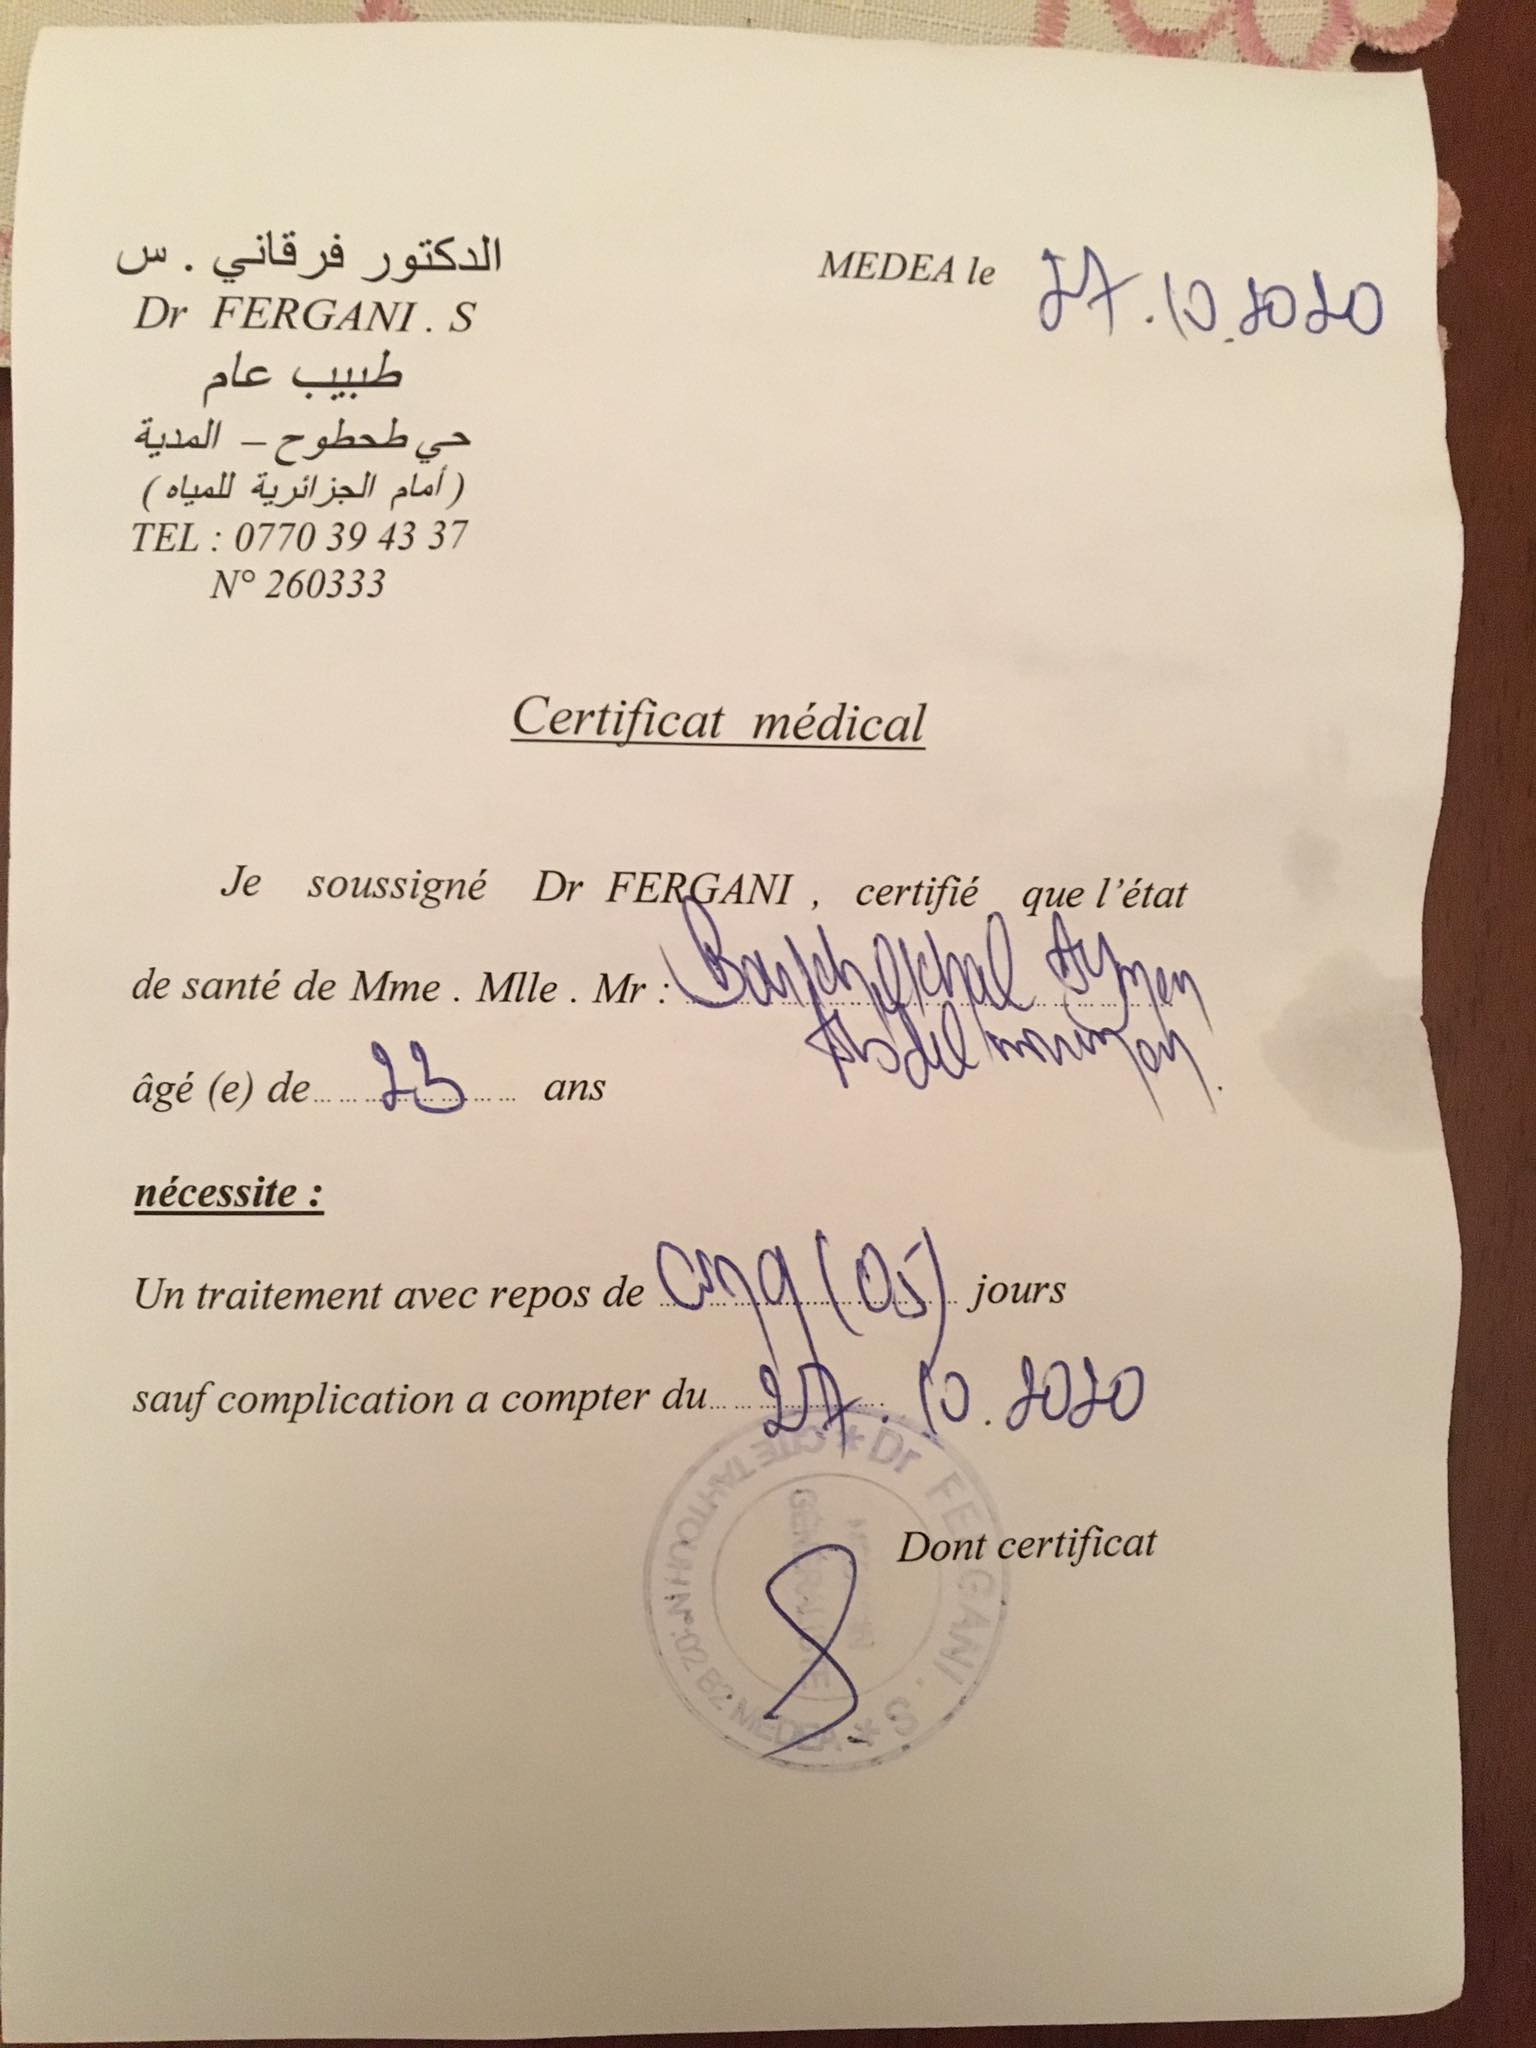 الدكتور فرقاني . س
Dr FERGANI . S
طبيب عام
حي طحطوح – المدية
( أمام الجزائرية للمياه )
TEL : 0770 39 43 37
N° 260333
MEDEA le 27.10.2020
Certificat médical
Je soussigné Dr FERGANI , certifié que l'état
de santé de Mme . Mlle . Mr : Aymen
âgé (e) de 23 ans
nécessite :
Un traitement avec repos de cinq (05) jours
sauf complication a compter du 27.10.2020
Dont certificat
* Dr FERGANI . S * CITE TAHTOUH N°: 02 82 MEDEA
GÉNÉRALISTE